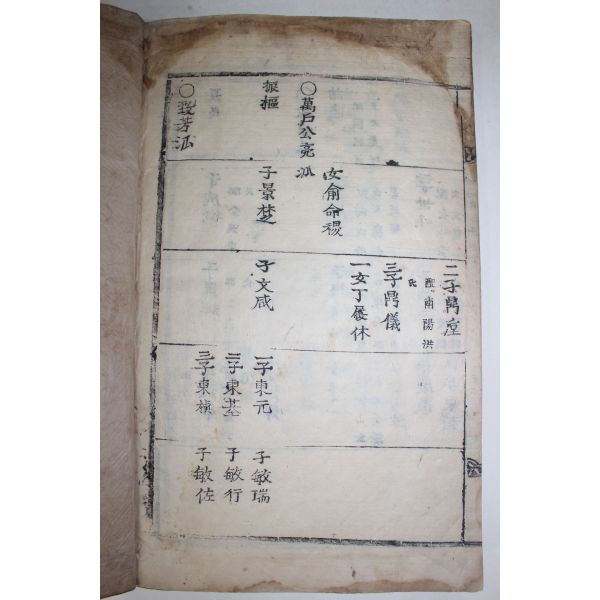 二子鼎座
配南陽洪氏
三子鼎儀
一女丁屐休
女兪命稷
○萬戶公亮派
振樞
子景楚
子文咸
一子東元
子敏瑞
二子東基
子敏行
三子東禛
子敏佐
派